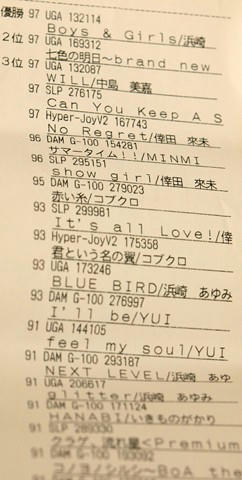 優勝 97 UGA 132114
Boys & Girls/浜崎
2位 97 UGA 169312
七色の明日~brand new
3位 97 UGA 132087
WILL/中島 美嘉
97 SLP 276175
Can You Keep A S
97 Hyper-JoyV2 167743
No Regret/倖田 來未
96 DAM G-100 154281
サマータイム!!/MINMI
96 SLP 295151
show girl/倖田 來未
95 DAM G-100 279023
赤い糸/コブクロ
93 SLP 299981
It's all Love!/倖
93 Hyper-JoyV2 175358
君という名の翼/コブクロ
93 UGA 173246
BLUE BIRD/浜崎 あゆみ
93 DAM G-100 276997
I'll be/YUI
91 UGA 144105
feel my soul/YUI
91 DAM G-100 293187
NEXT LEVEL/浜崎 あゆ
91 UGA 206617
glitter/浜崎 あゆみ
91 DAM G-100 171124
HANABI/いきものがかり
91 SLP 289330
クラゲ、流れ星<Premium
91 DAM G-100 193092
コノヨノシルシ~BoA the